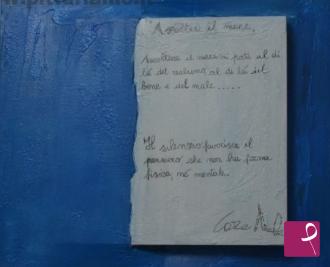 Ascoltare il mare,
Ascoltare il mare si pote al di
là del nessuno al di là del
bene e del male.....
Il silenzio favorisce il
pensiero che non ha forma
fisica, né mentale.